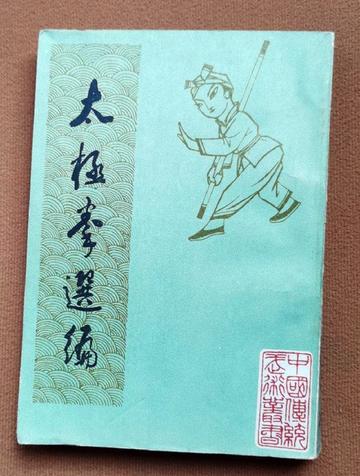 太極拳選編
中國傳統
武術叢書